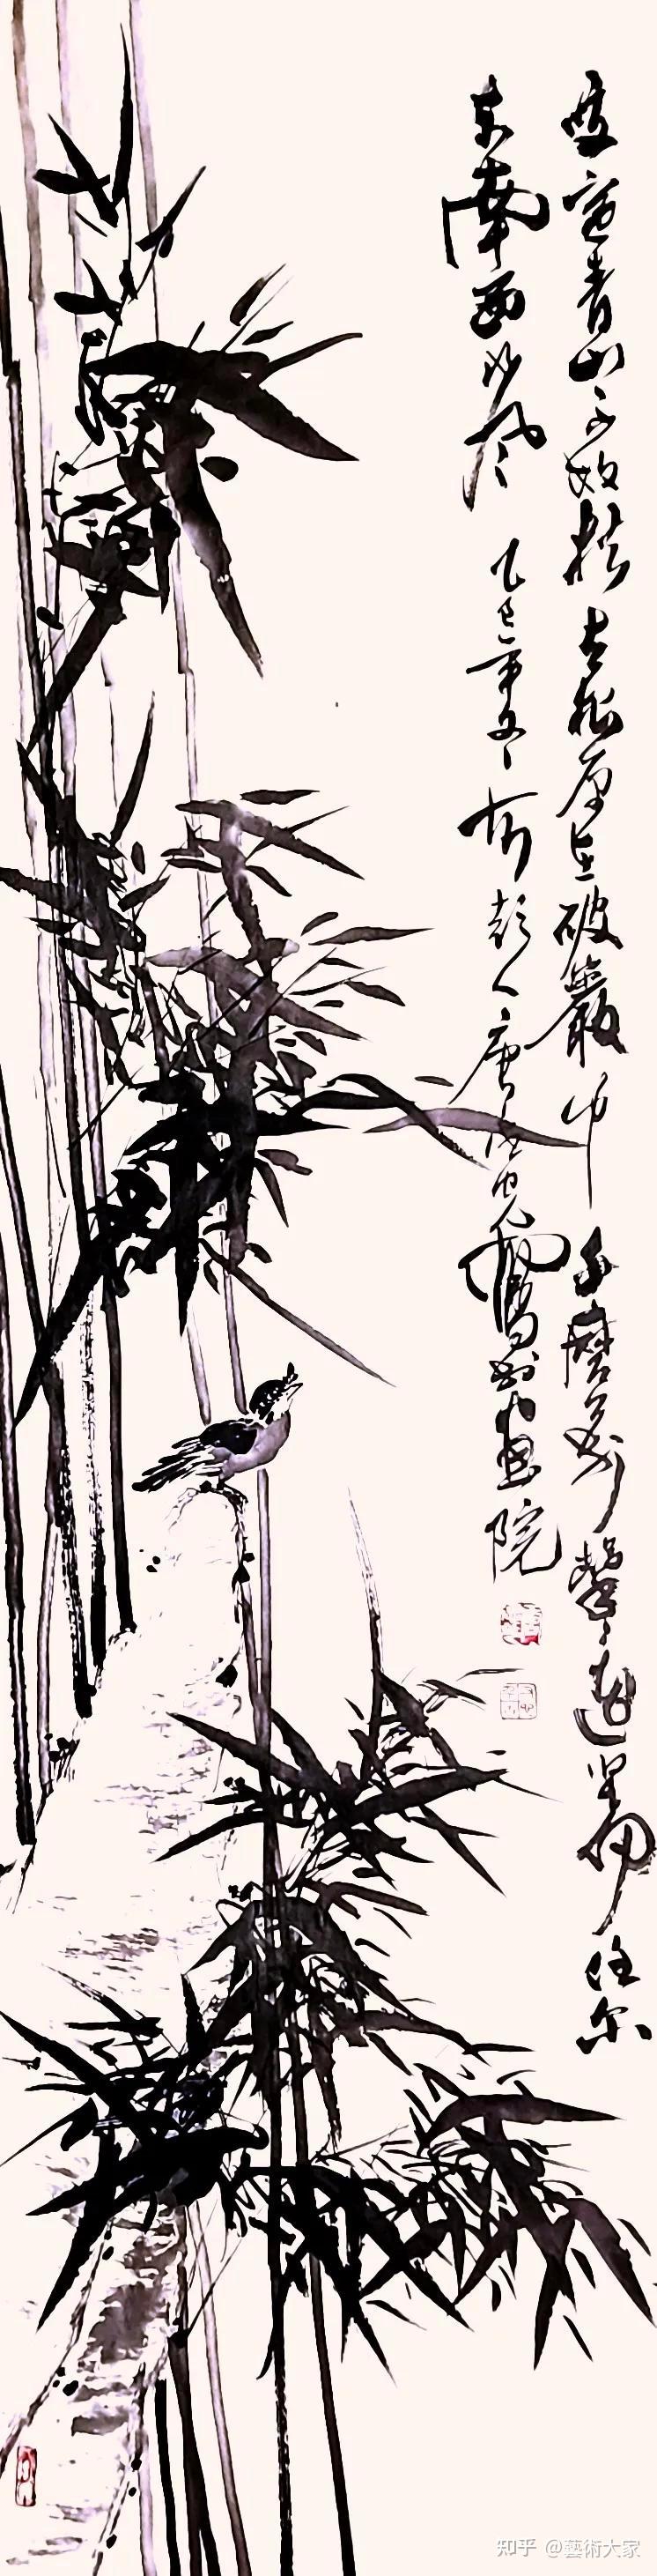 咬定青山不放松立根原在破巖中千磨万擊還坚劲任尔
东南西北风 乙巳年冬 彭人唐 画院
知乎 @藝術大家